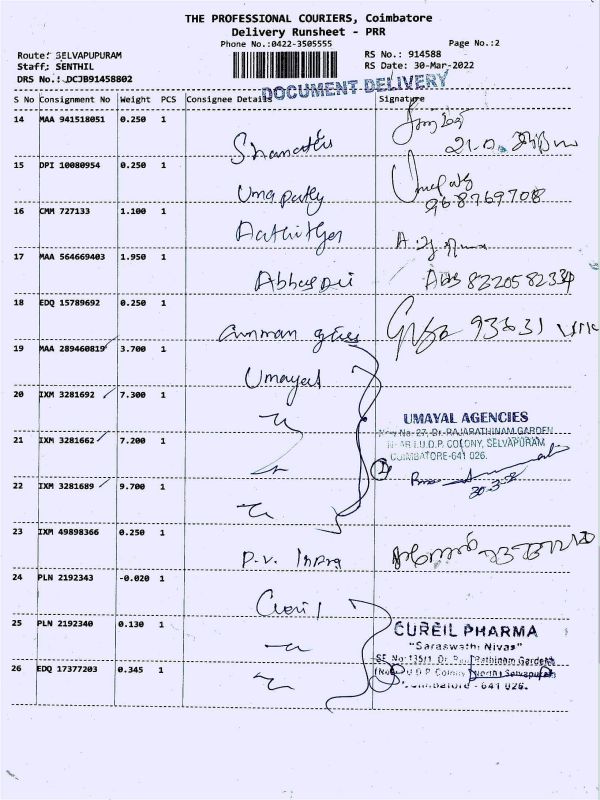 THE PROFESSIONAL COURIERS, Coimbatore
Delivery Runsheet - PRR
Phone No.:0422-3505555
Page No.:2
Route: SELVAPUPURAM
Staff: SENTHIL
DRS No.: DCJB91458802
RS No.: 914588
RS Date: 30-Mar-2022
DOCUMENT DELIVERY
S No Consignment No Weight PCS Consignee Details Signature
14 MAA 941518051 0.250 1
Shanathi
15 DPI 10080954 0.250 1
Umapathy
968769708
16 CMM 727133 1.100 1
17 MAA 564669403 1.950 1
8220582334
18 EDQ 15789692 0.250 1
93631
19 MAA 289460819 3.700 1
Umayal
20 IXM 3281692 7.300 1
UMAYAL AGENCIES
New No-27, Dr. RAJARATHINAM GARDEN
NEAR I.U.D.P. COLONY, SELVAPURAM
COIMBATORE-641 026.
21 IXM 3281662 7.200 1
22 IXM 3281689 9.700 1
23 IXM 49898366 0.250 1
P.V.
24 PLN 2192343 -0.020 1
Cureil
25 PLN 2192340 0.130 1
CUREIL PHARMA
"Saraswathi Nivas"
26 EDQ 17377203 0.345 1
Coimbatore - 641 026.